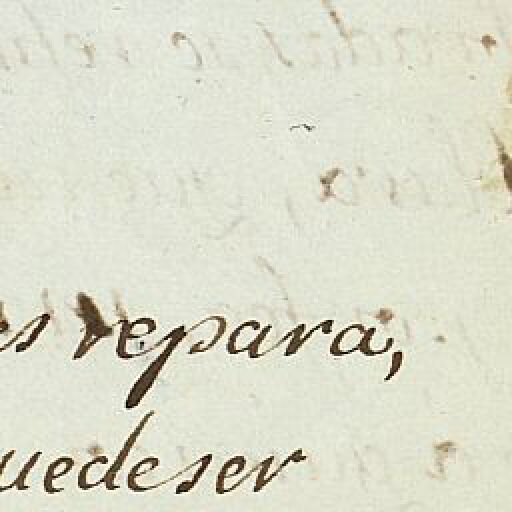 es repara,
uede ser